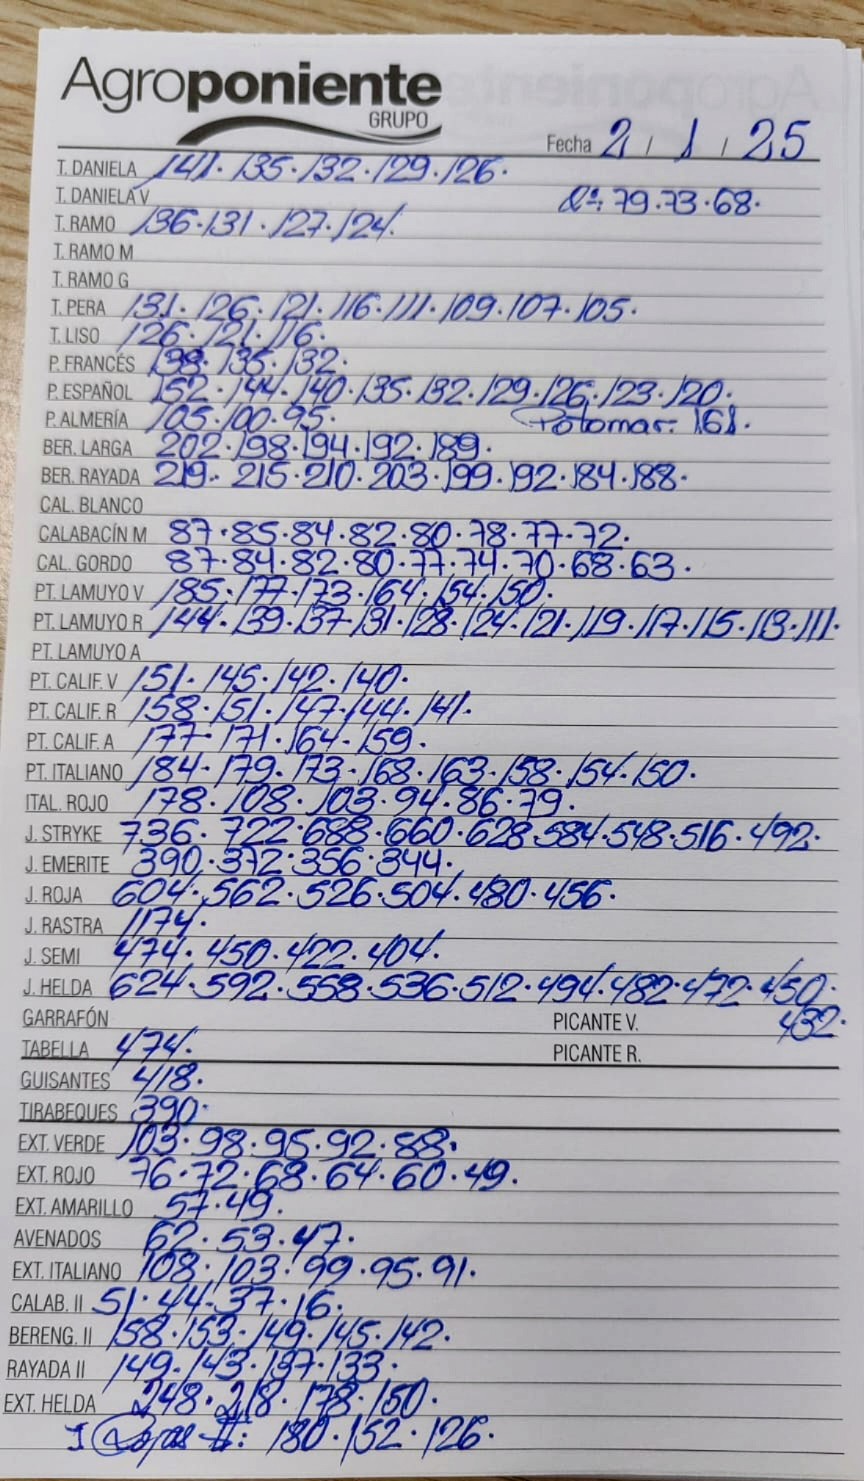 Agroponiente
GRUPO
Fecha 2 / 1 / 25
T. DANIELA 141. 135. 132. 129. 126.
T. DANELA V 2ª: 79. 73. 68.
T. RAMO 136. 131. 127. 124.
T. RAMO M
T. RAMO G
T. PERA 131. 126. 121. 116. 111. 109. 107. 105.
T. LISO 126. 121. 116.
P. FRANCÉS 138. 135. 132.
P. ESPAÑOL 152. 144. 140. 135. 132. 129. 126. 123. 120.
P. ALMERÍA 105. 100. 95. Potomac: 161.
BER. LARGA 202. 198. 194. 192. 189.
BER. RAYADA 219. 215. 210. 203. 199. 192. 184. 188.
CAL. BLANCO
CALABACÍN M 87. 85. 84. 82. 80. 78. 77. 72.
CAL. GORDO 87. 84. 82. 80. 77. 74. 70. 68. 63.
PT. LAMUYO V 185. 177. 173. 164. 154. 150.
PT. LAMUYO R 144. 139. 137. 131. 128. 124. 121. 119. 117. 115. 113. 111.
PT. LAMUYO A
PT. CALIF. V 151. 145. 142. 140.
PT. CALIF. R 158. 151. 147. 144. 141.
PT. CALIF. A 177. 171. 164. 159.
PT. ITALIANO 184. 179. 173. 168. 163. 158. 154. 150.
ITAL. ROJO 178. 108. 103. 94. 86. 79.
J. STRYKE 736. 722. 688. 660. 628. 584. 548. 516. 492.
J. EMERITE 390. 372. 356. 344.
J. ROJA 604. 562. 526. 504. 480. 456.
J. RASTRA 1174.
J. SEMI 474. 450. 422. 404.
J. HELDA 624. 592. 558. 536. 512. 494. 482. 472. 450.
GARRAFÓN PICANTE V. 432.
TABELLA 474. PICANTE R.
GUISANTES 418.
TIRABEQUES 390.
EXT. VERDE 103. 98. 95. 92. 88.
EXT. ROJO 76. 72. 68. 64. 60. 49.
EXT. AMARILLO 57. 49.
AVENADOS 62. 53. 47.
EXT. ITALIANO 108. 103. 99. 95. 91.
CALAB. II 51. 44. 37. 16.
BERENG. II 158. 153. 149. 145. 142.
RAYADA II 149. 143. 137. 133.
EXT. HELDA 248. 218. 178. 150.
II: 180. 152. 126.